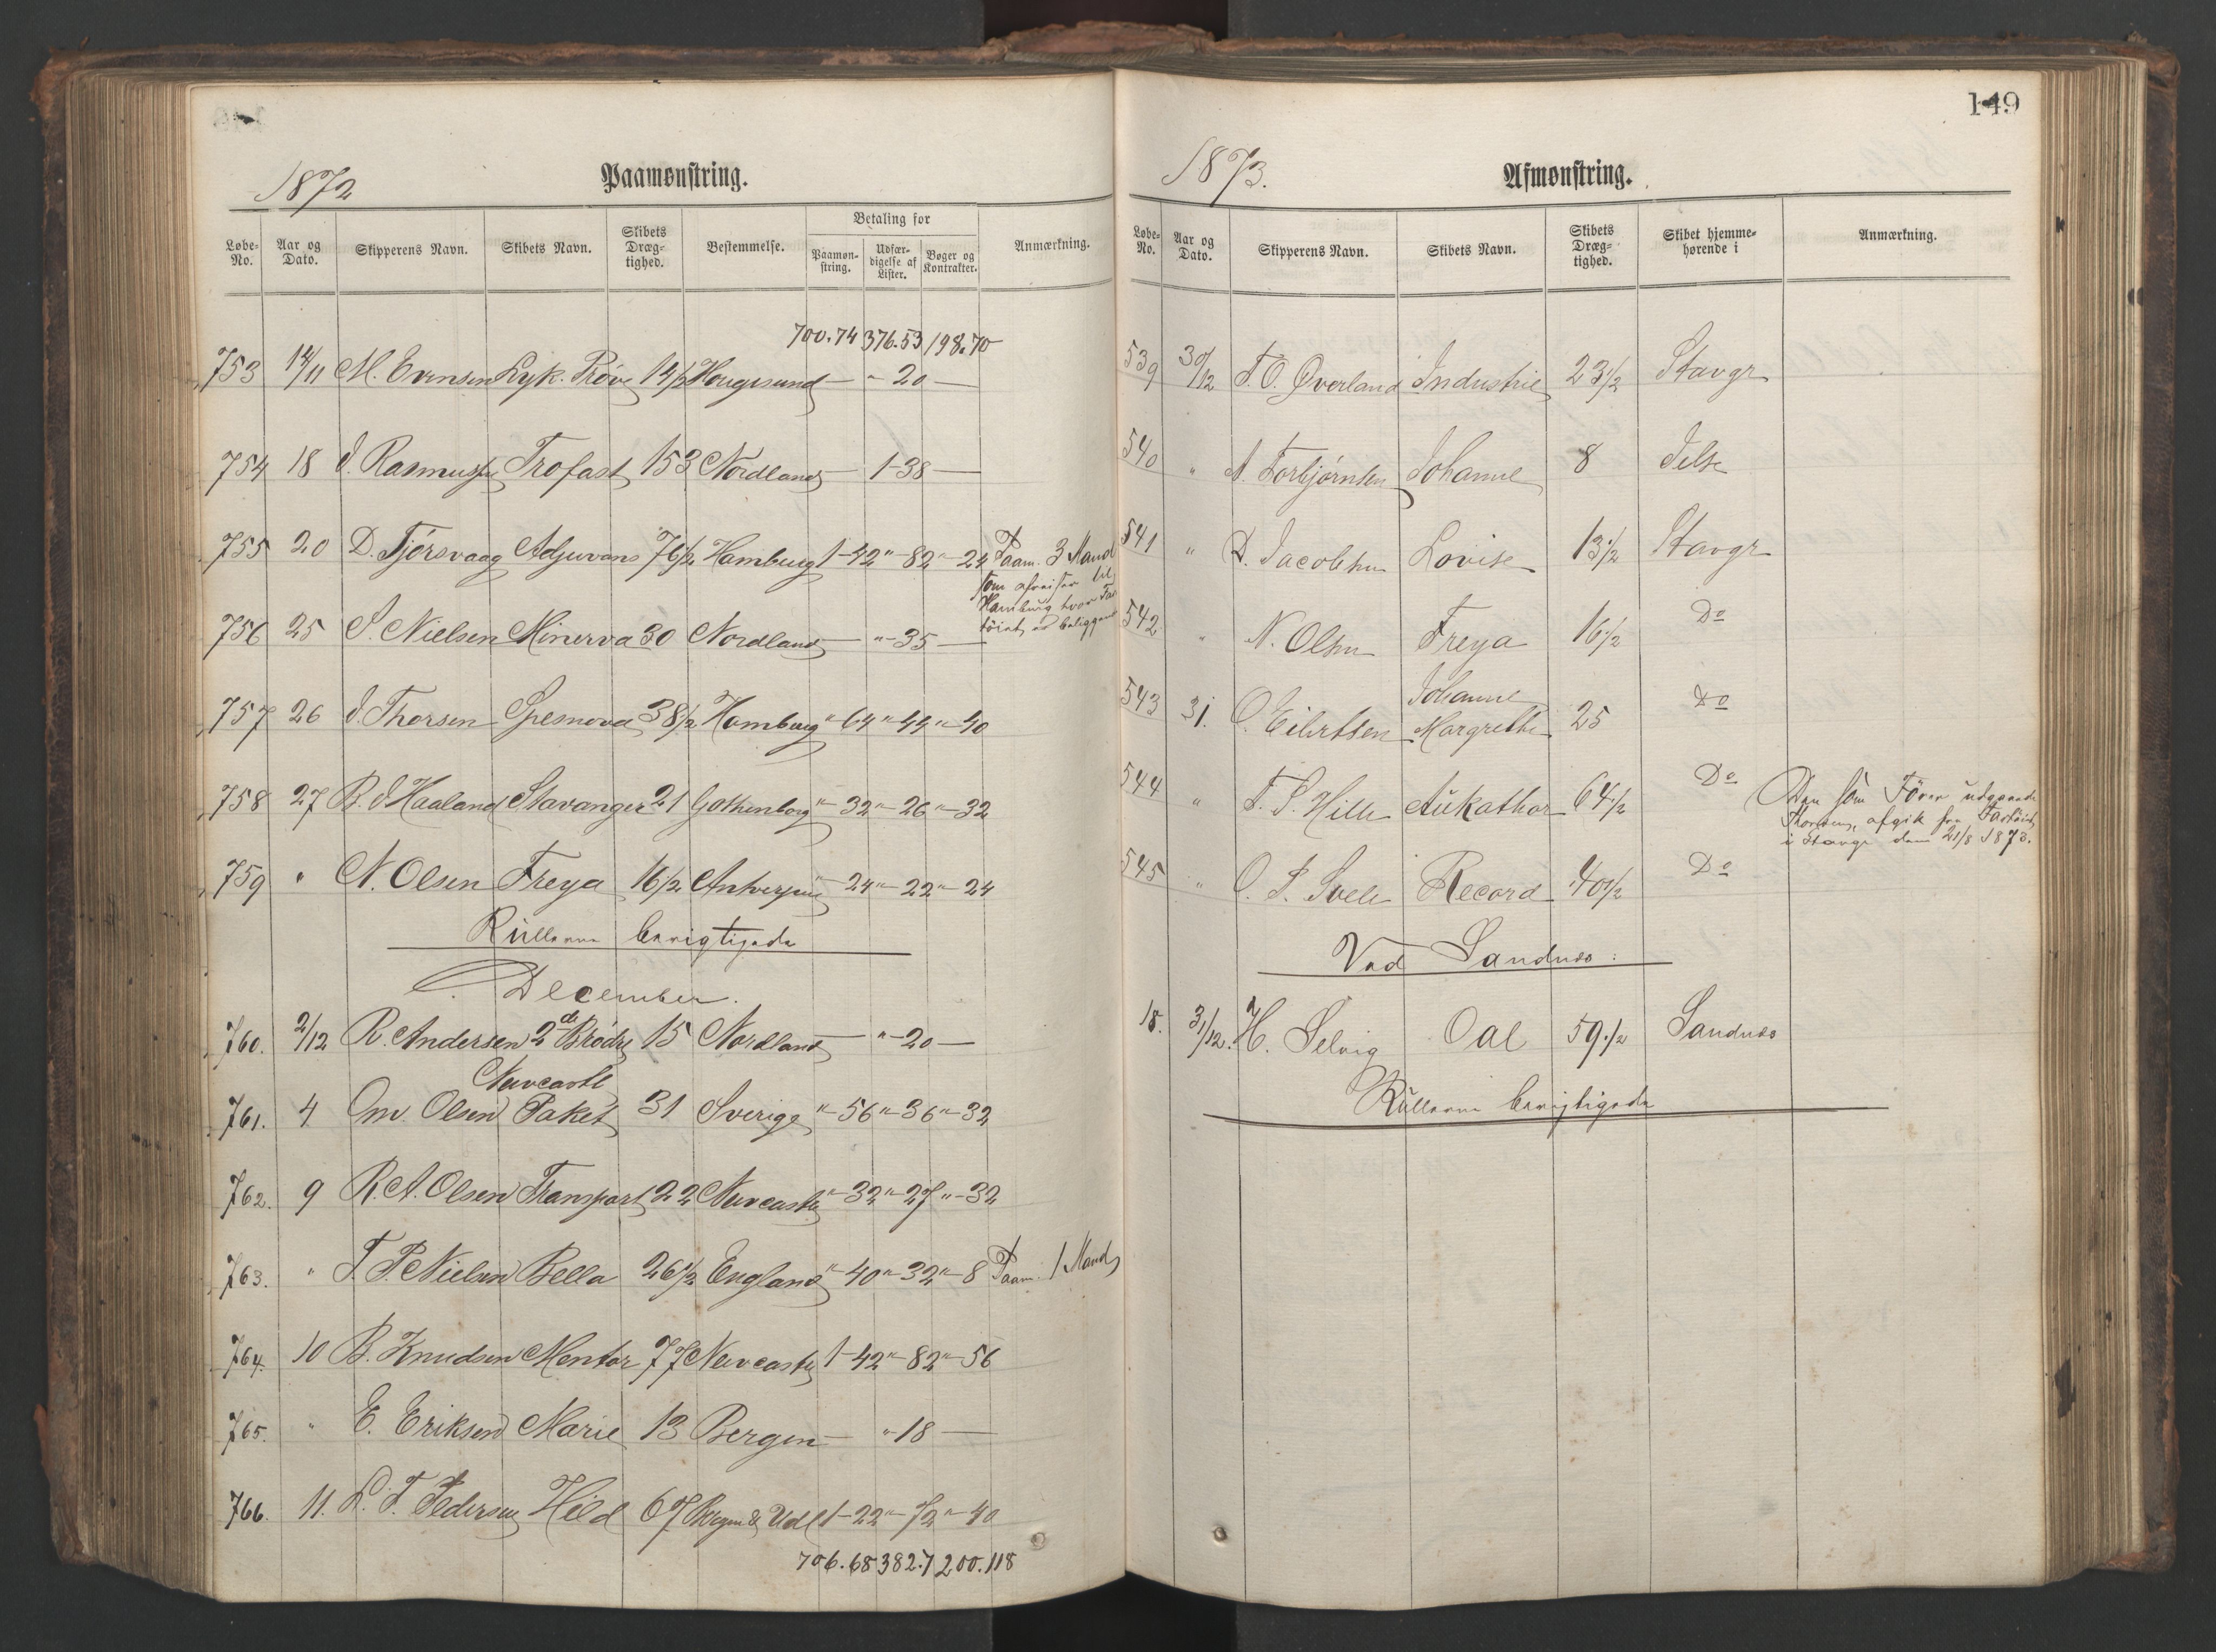 1872
Paamønstring.
Løbe-No. Aar og Dato. Skipperens Navn. Skibets Navn. Skibets Dræg-tighed. Bestemmelse. Betaling for Paamøn-string. Udfær-digelse af Lister. Bøger og Kontrakter. Anmærkning.
700.74 376.53 198.70
753 14/11 M. Evensen Lyk. Prøve 14½ Hougesund — " 20 —
754 18 J. Rasmussen Trofast 153 Nordland — 1-38 —
755 20 D. Tjörsvaag Adjuvans 76½ Hamburg 1-42 "-82 "-24 Paam. 3 Mand
som afreiser til
Hamburg hvor Far
töiet er beliggende
756 25 S. Nielsen Minerva 30 Nordland — "-35 —
757 26 J. Thorsen Spesnova 38½ Hamburg "-64 "-44 "-40
758 27 B. J Haaland Stavanger 21 Gothenborg "-32 "-26 "-32
759 " N. Olsen Freya 16½ Antverpen "-24 "-22 "-24
Rullerne berigtigede
December.
760. 2/12 R. Andersen 2de Brødre 15 Nordland — "-20 —
Newcastle
761. 4 Om. Olsen Paket 31 Sverige "-56 "-36 "-32
762. 9 R. A. Olsen Transport 22 Newcastle "-32 "-27 "-32
763. " T. P. Nielsen Bella 26½ England "-40 "-32 "-8 Paam. 1 Mand
764. 10 B. Knudsen Mentor 77 Newcastle 1-42 "-82 "-56
765. " E. Eriksen Marie 13 Bergen — "-18 —
766. 11. L. T. Pedersen Hild 67 Bergen & Udl 1-22 "-72 "-40
706.68 382.71 200.118
149
1873.
Afmønstring.
Løbe-No. Aar og Dato. Skipperens Navn. Skibets Navn. Skibets Dræg-tighed. Skibet hjemme-hørende i Anmærkning.
539 30/12 T. O. Øverland Industrie 23½ Stavgr
540 " A. Torbjørnsen Johanne 8 Jelse
541 " D. Jacobsen Lovise 13½ Stavgr
542 " N. Olsen Freya 16½ Do
Johanne
543 31. O. Eilertsen Margrethe 25 Do
544 " T. S. Hille Aukathor 64½ Do Den som Förer udgaaede
Thorsen, afgik fra Fartöiet
i Stavgr den 21/8 1873.
545 " O. P. Svele Record 40½ Do
Ved Sandnes:
18. 31/12. H. Selvig Oal 59½ Sandnes
Rullerne berigtigede